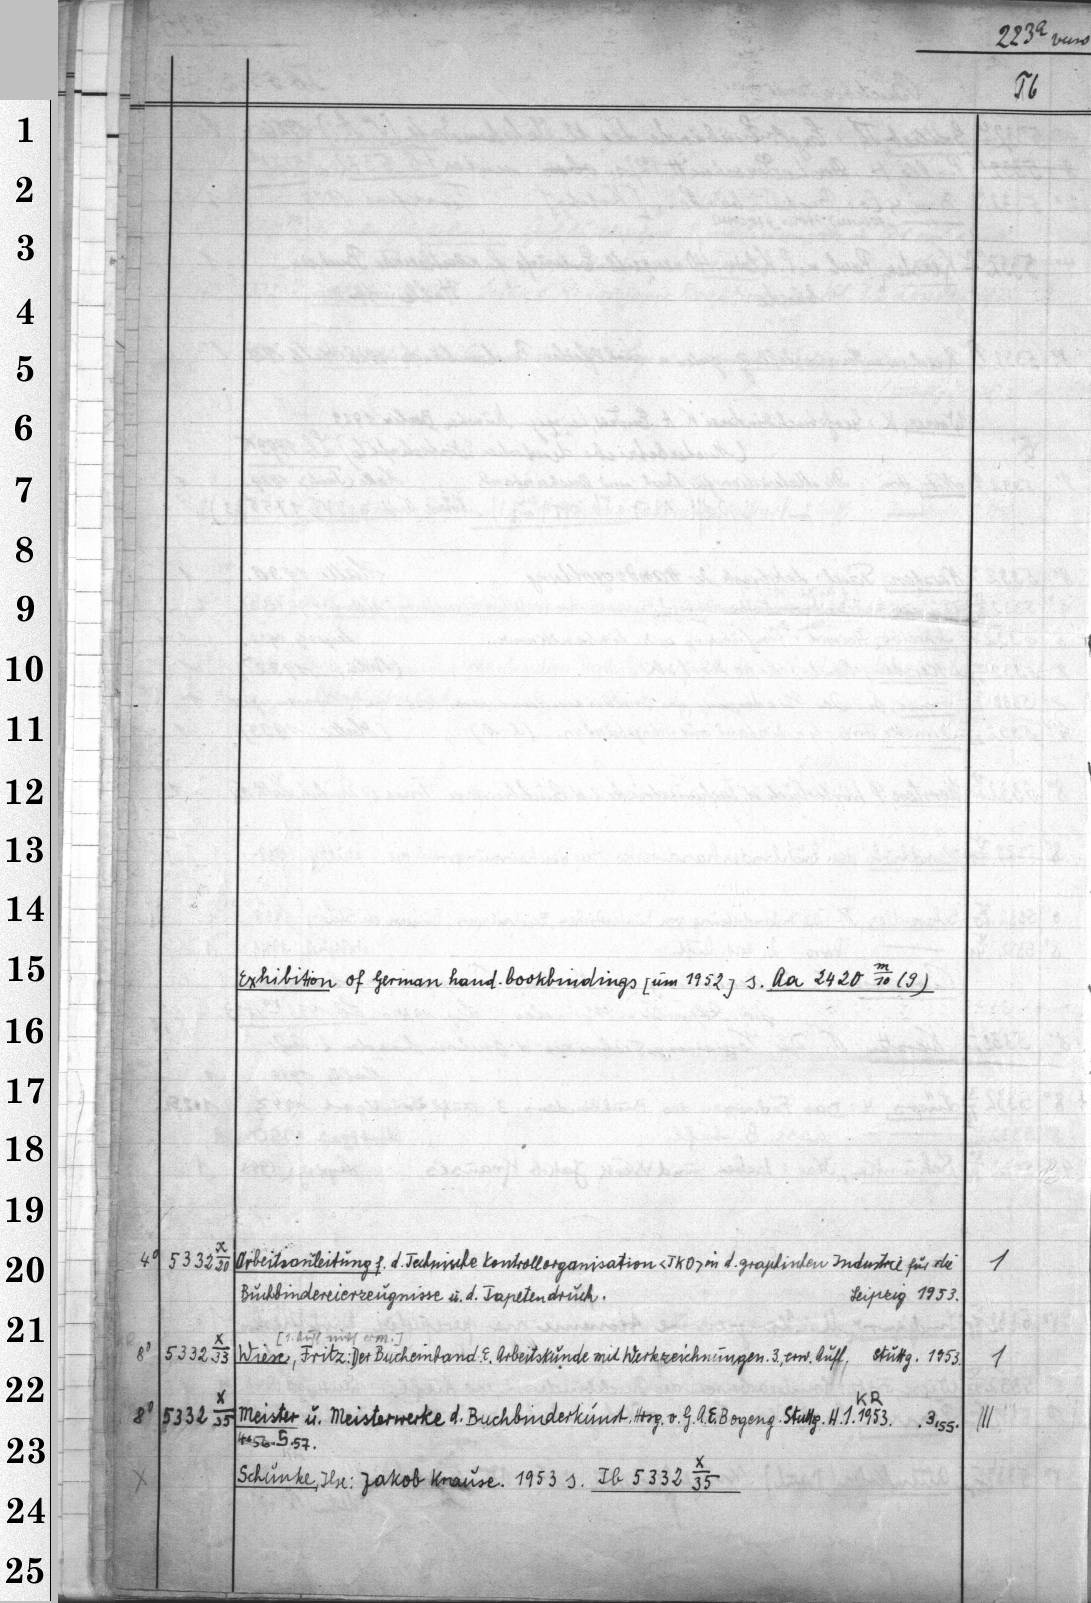 223a verso
Tb
1
2
3
4
5
6
7
8
9
10
11
12
13
14
15
Exhibition of German hand-bookbindings [um 1952] s. Aa 2420 m/10 (9)
16
17
18
19
20
4° 5332 x/20 Arbeitsanleitung f. d. Technische Kontrollorganisation <TKO> in d. graphischen Industrie für die 1
Buchbindereierzeugnisse u. d. Tapetendruck. Leipzig 1953.
21
[1. Aufl. nicht erm.]
8° 5332 x/33 Wiese, Fritz: Der Bucheinband. E. Arbeitskunde mit Werkzeichnungen. 3., erw. Aufl. Stuttg. 1953. 1
22
KR
8° 5332 x/35 Meister u. Meisterwerke d. Buchbinderkunst. Hrsg. v. G. A. E. Bogeng. Stuttg. H. 1. 1953. . 3,55. III
4,56. 5,57.
23
X Schunke, Ilse: Jakob Krause. 1953 s. Tb 5332 x/35
24
25